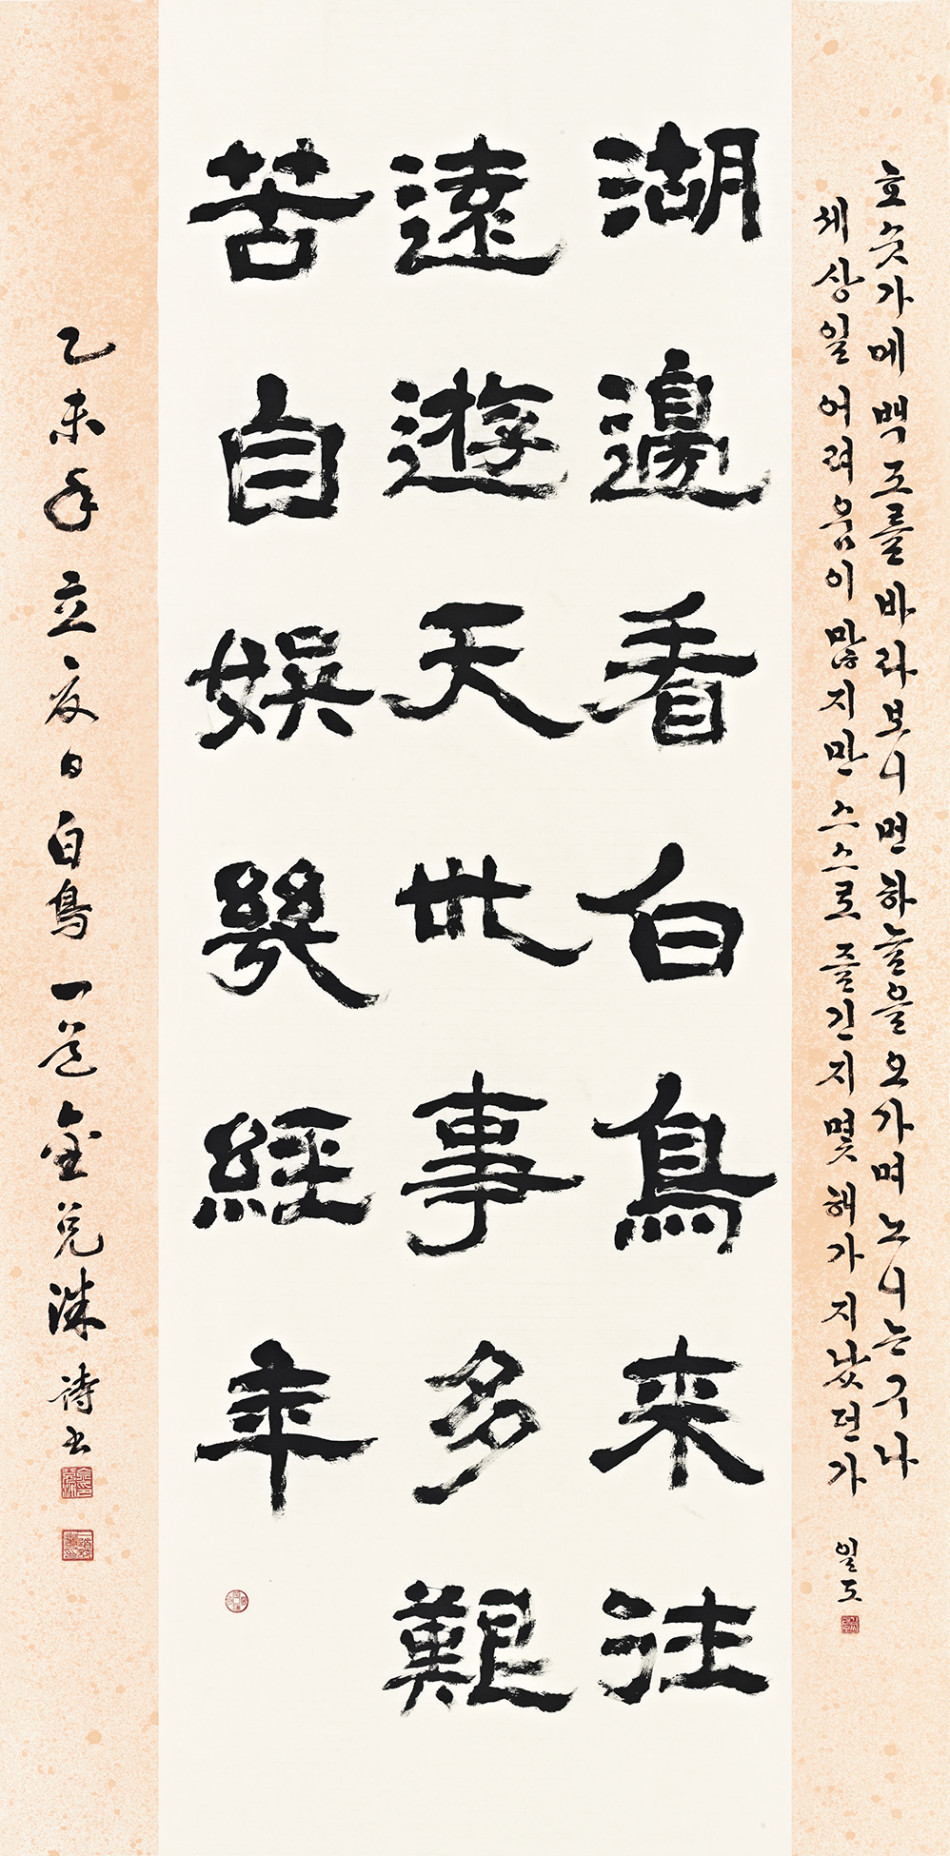 호숫가에 백조를 바라보니 먼 하늘을 오가며 노니는구나
세상일 어려움이 많지만 스스로 즐긴지 몇해가 지났던가 일도
湖邊看白鳥来往
遠遊天世事多艱
苦自娛幾經年
乙未年立夏日白鳥一道金兌洙詩書